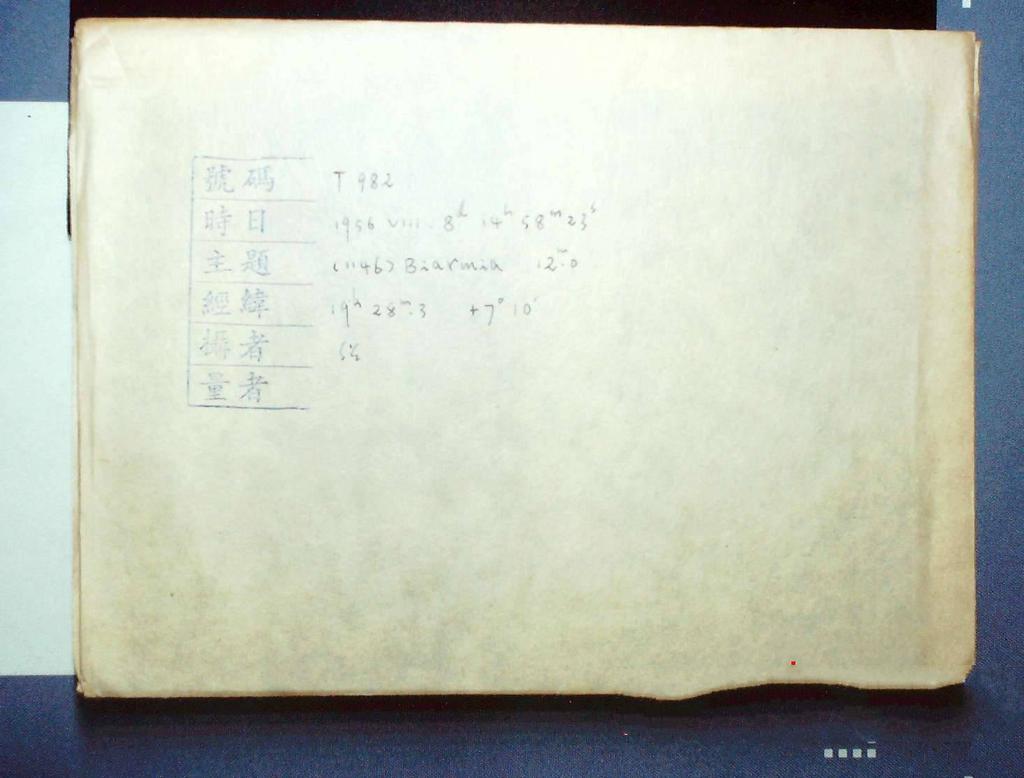 號碼 T 982
時日 1956 VIII. 8ᵈ 14ʰ 58ᵐ 23ˢ
主題 (1146) Biarmia 12ᵐ.0
經緯 19ʰ 28ᵐ.3 +7° 10'
攝者
量者